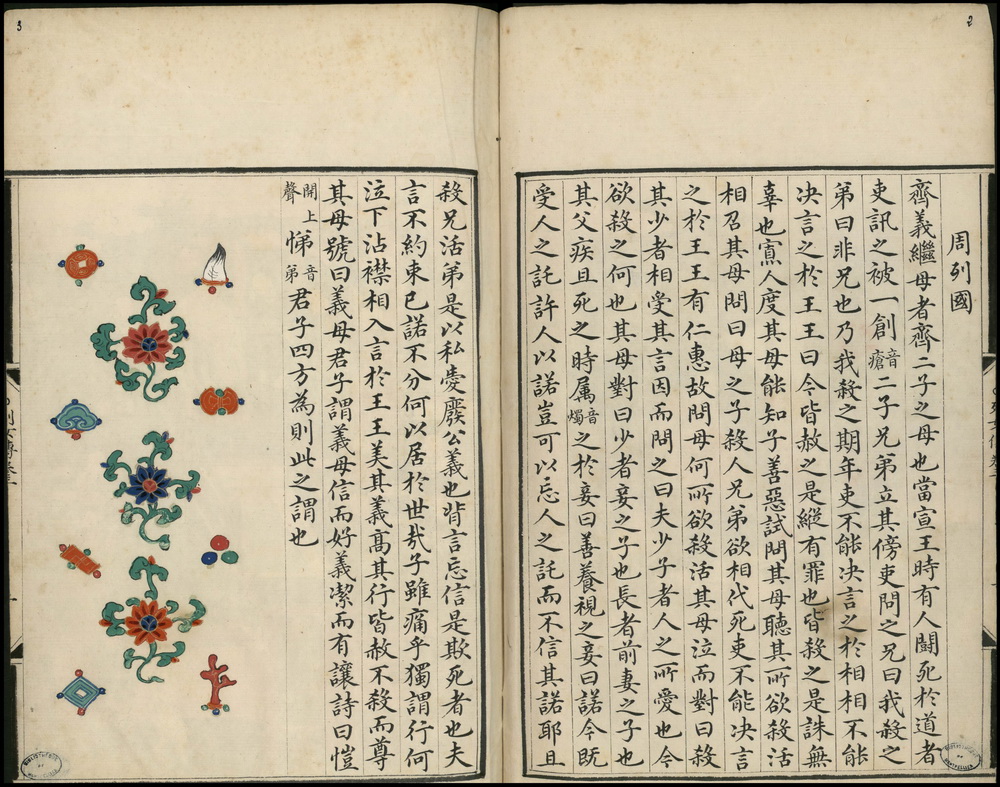 2
周列國
齊義繼母者齊二子之母也當宣王時有人鬬死於道者
吏訊之被一創音瘡二子兄弟立其傍吏問之兄曰我殺之
弟曰非兄也乃我殺之期年吏不能決言之於相相不能
決言之於王王曰今皆赦之是縱有罪也皆殺之是誅無
辜也寡人度其母能知子善惡試問其母聽其所欲殺活
相召其母問曰母之子殺人兄弟欲相代死吏不能決言
之於王王有仁惠故問母何所欲殺活其母泣而對曰殺
其少者相受其言因而問之曰夫少子者人之所愛也今
欲殺之何也其母對曰少者妾之子也長者前妻之子也
其父疾且死之時属音燭之於妾曰善養視之妾曰諾今既
受人之託許人以諾豈可以忘人之託而不信其諾耶且
3
殺兄活弟是以私愛廢公義也背言忘信是欺死者也夫
言不約束已諾不分何以居於世哉子雖痛乎獨謂行何
泣下沾襟相入言於王王美其義高其行皆赦不殺而尊
其母號曰義母君子謂義母信而好義潔而有讓詩曰愷
開上聲悌音弟君子四方為則此之謂也